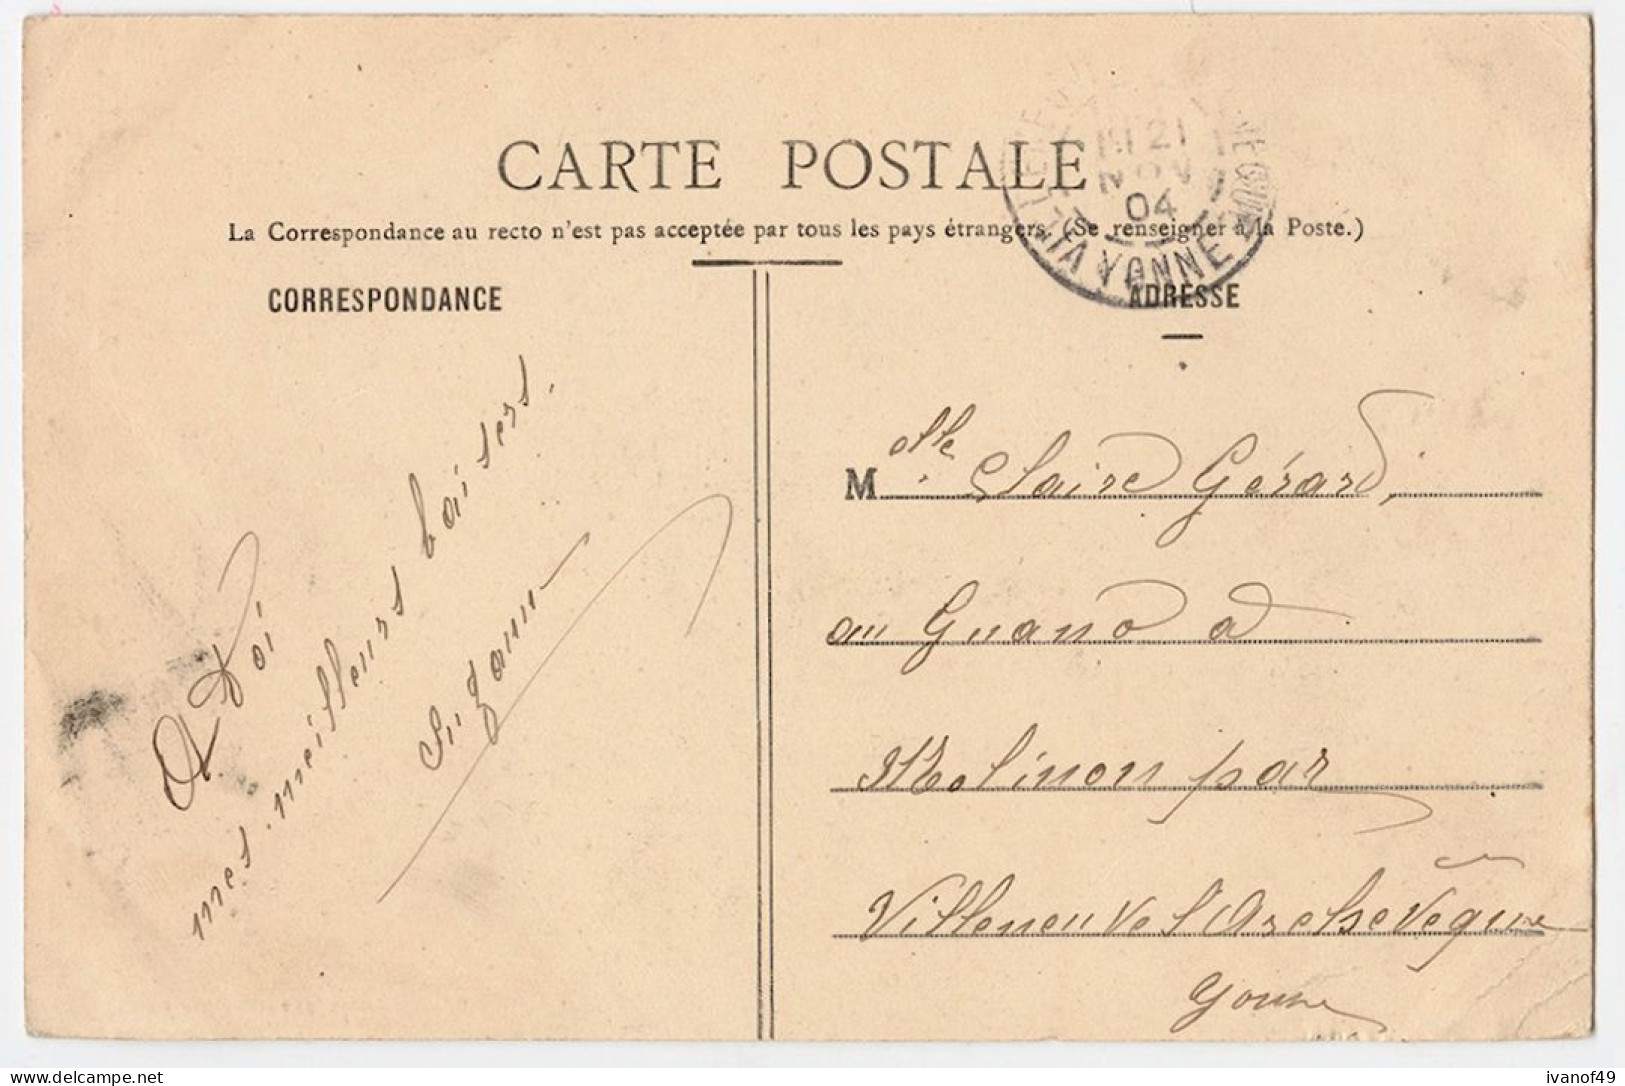 CARTE POSTALE
La Correspondance au recto n'est pas acceptée par tous les pays étrangers. (Se renseigner à la Poste.)
CORRESPONDANCE
A toi
mes meilleurs baisers.
Suzanne
21
NOV
04
YONNE
ADRESSE
Mlle Claire Gérard,
au Guano a
Molinon par
Villeneuve l'Archevêque
Yonne
ivanof49